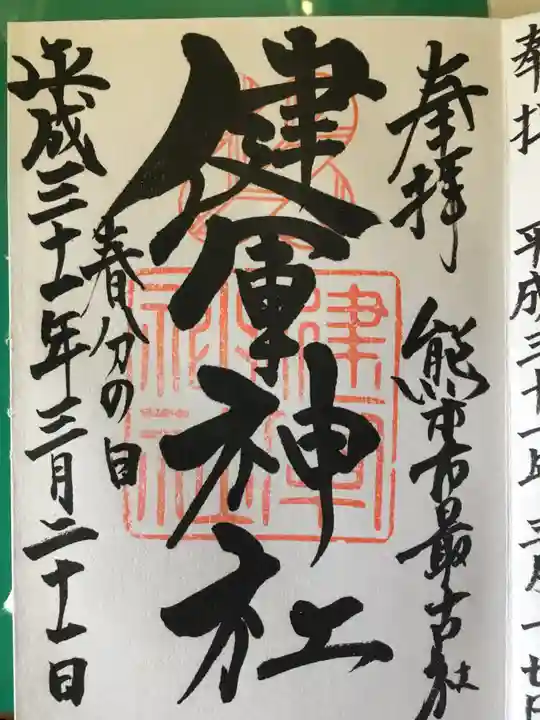 奉拝
平成三十一年三月
奉拝
熊本市最古社
健軍神社
春分の日
平成三十一年三月二十一日